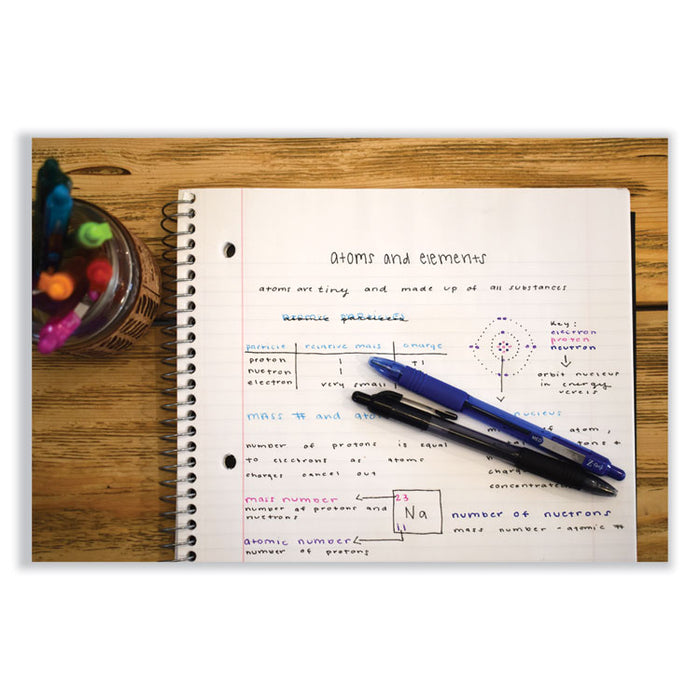 atoms and elements
atoms are tiny and made up of all substances
atomic particles
Key:
electron
proton
neutron
particle relative mass charge
proton 1 +1
nuetron 1
electron very small
orbit nucleus
in energy
mass # and nucleus
of atom,
number of protons is equal
to electrons as atomic
charges cancel out
mass number 23
number of protons and
nuetrons
Na
11
number of nuetrons
mass number - atomic #
atomic number
number of protons